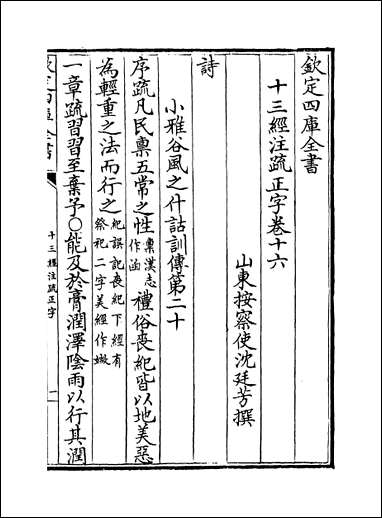 欽定四庫全書
十三經注疏正字卷十六
山東按察使沈廷芳撰
詩
小雅谷風之什詁訓傳第二十
序疏凡民禀五常之性禀漢志作函禮俗喪紀皆以地美惡
為輕重之法而行之紀誤記喪紀下經有祭祀二字美經作媺
一章疏習習至棄予○能及於膏潤澤陰雨以行其潤
十三經注疏正字
一